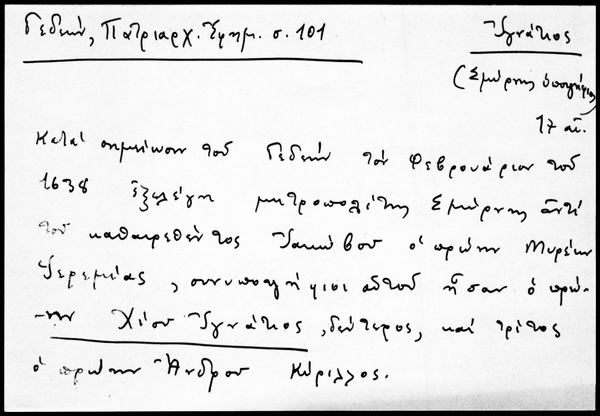 Γεδεών, Πατριαρχ. Ἐφημ. σ. 101
Ἰγνάτιος
(Σμύρνης ὑποψήφιος)
17 αἰ.
Κατά σημείωσιν τοῦ Γεδεών τόν Φεβρουάριον τοῦ
1638 ἐξελέγη μητροπολίτης Σμύρνης ἀντί
τοῦ καθαιρεθέντος Ἰακώβου ὁ πρώην Μυρέων
Ἱερεμίας, συνυποψήφιοι αὐτοῦ ἦσαν ὁ πρώ-
-ην Χίου Ἰγνάτιος, δεύτερος, καί τρίτος
ὁ πρώην Ἄνδρου Κύριλλος.